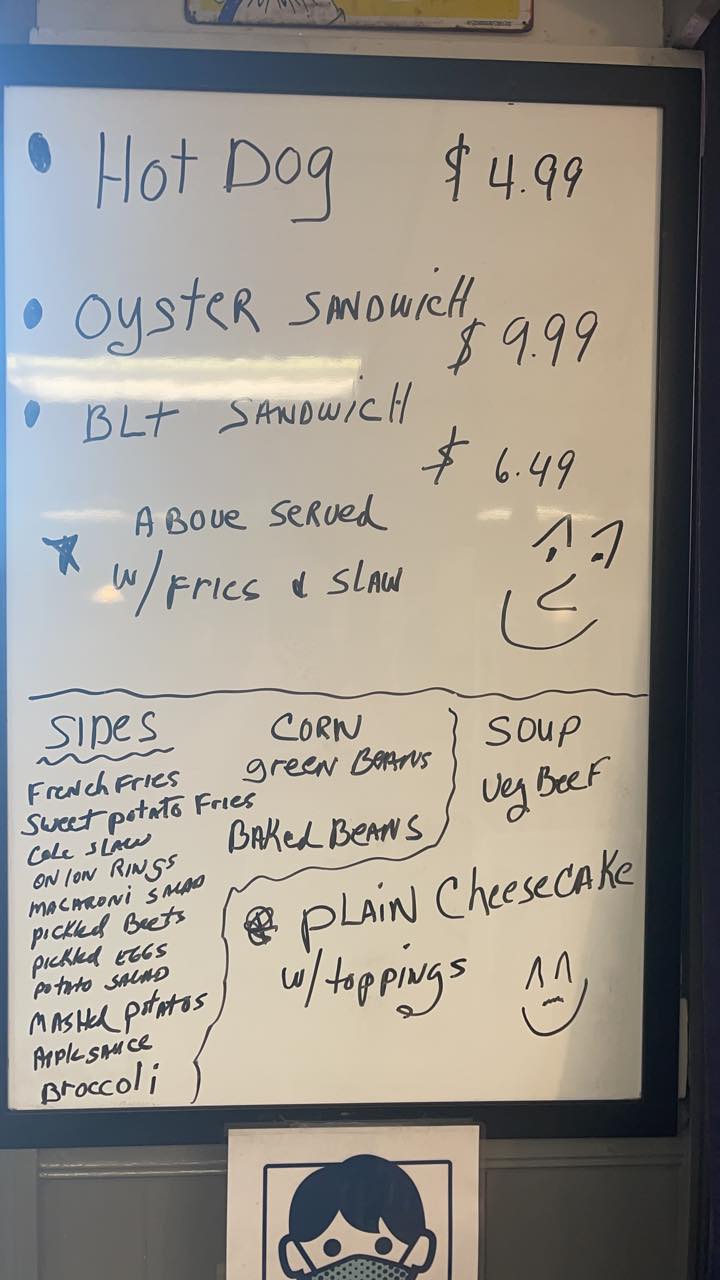 Hot Dog $ 4.99
OysteR SANDWicH
$ 9.99
BLt SANDWicH
$ 6.49
ABove Served
w/ Fries & SLAW
Sides
French Fries
Sweet potato Fries
Cole SLAW
ONION RINGS
MACARONi SALAD
pickled Beets
pickled EGGS
potato SALAD
MASHed potatos
ApplesAuce
Broccoli
CORN
green BeANS
BAKed BeANS
SOUP
Veg BeeF
pLAiN CheesecAKe
w/ toppings